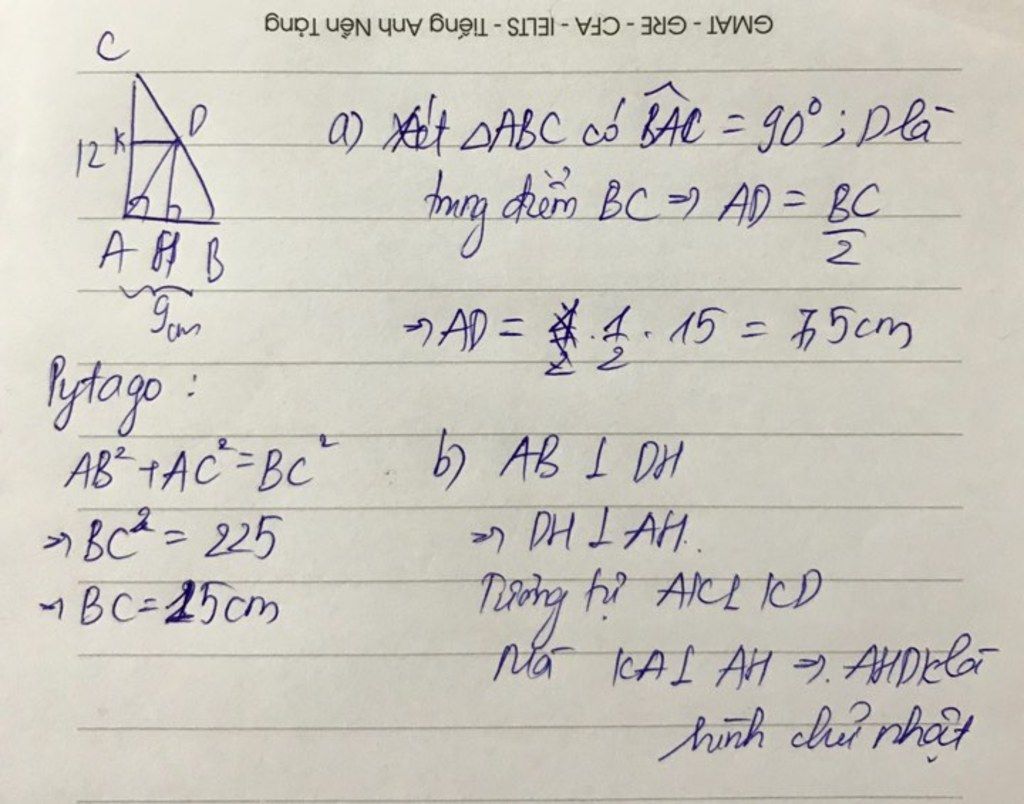 GMAT - GRE - CFA - IELTS - Tiếng Anh Nền Tảng
C
D
12 K
A H B
9cm
a) Xét △ABC có BAC = 90° ; D là
trung điểm BC => AD = BC/2
=> AD = 1/2 . 15 = 7,5cm
Pytago :
AB² + AC² = BC²
=> BC² = 225
=> BC = 15cm
b) AB ⊥ DH
=> DH ⊥ AH.
Tương tự AK ⊥ KD
Mà KA ⊥ AH => AHDK là
hình chữ nhật